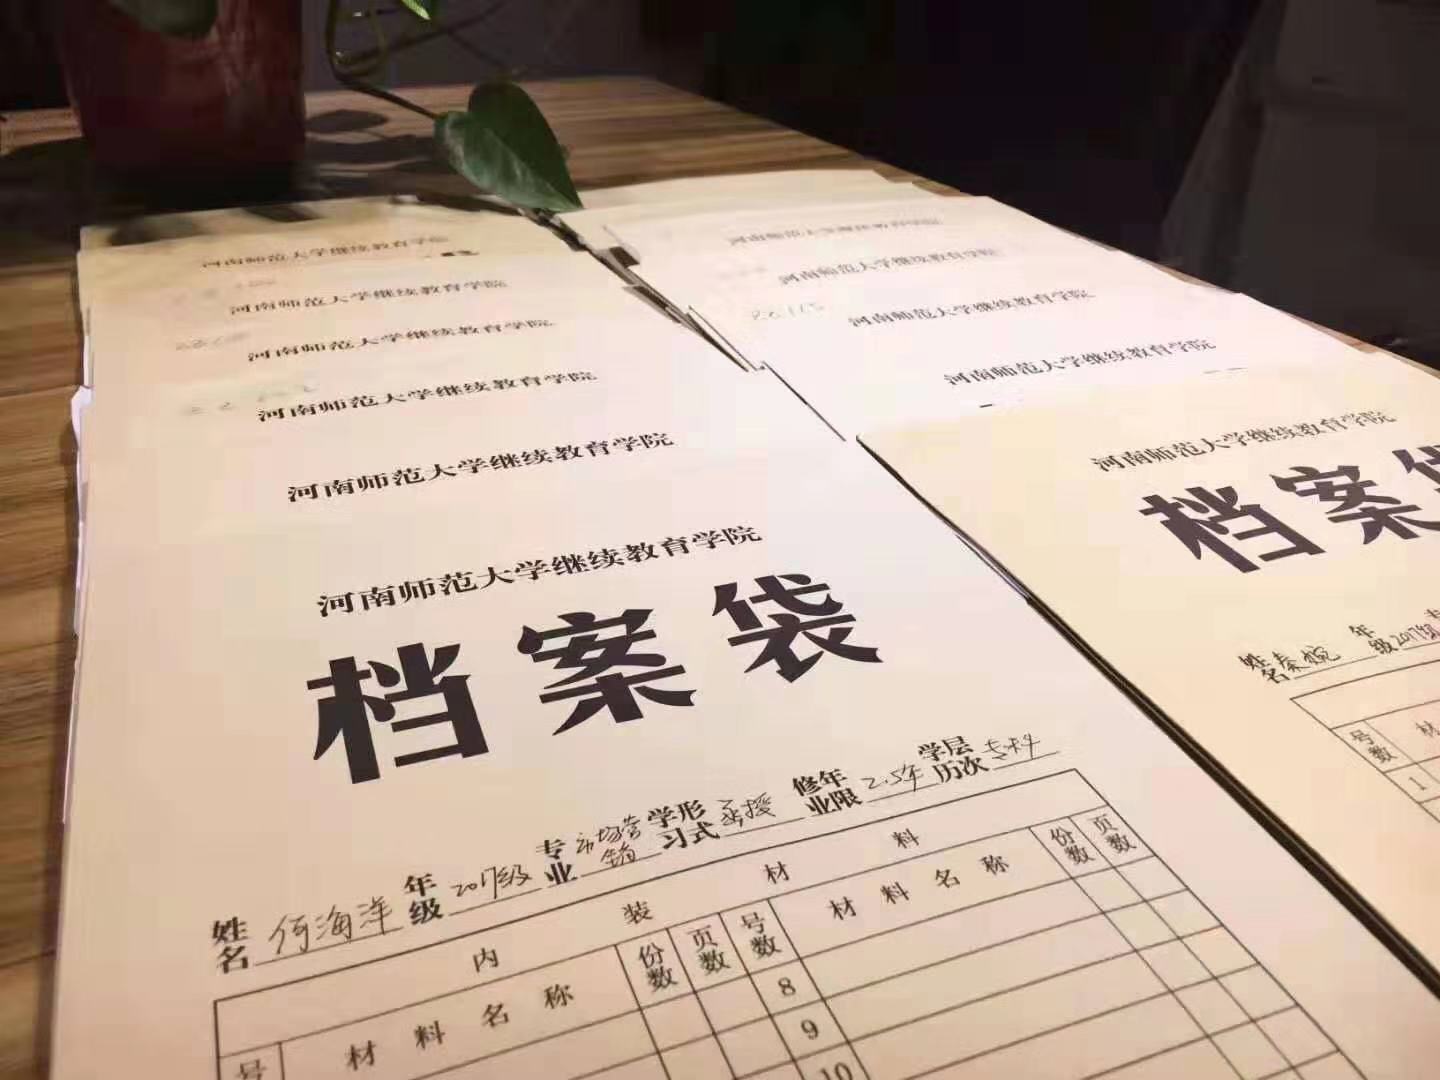 河南师范大学继续教育学院
河南师范大学继续教育学院
河南师范大学继续教育学院
河南师范大学继续教育学院
河南师范大学继续教育学院
河南师范大学继续教育学院
档案袋
姓名 何海洋 年级 2017级 专业 市场营销 学习形式 函授 修业年限 2.5年 学历层次 专科
内装材料
号 材料名称 份数 页数 号数 材料名称 份数 页数
8
9
10
河南师范大学继续教育学院
河南师范大学继续教育学院
河南师范大学继续教育学院
河南师范大学继续教育学院
河南师范大学继续教育学院
档案袋
姓名 秦婉 年级 2017级 专
号数 材
1